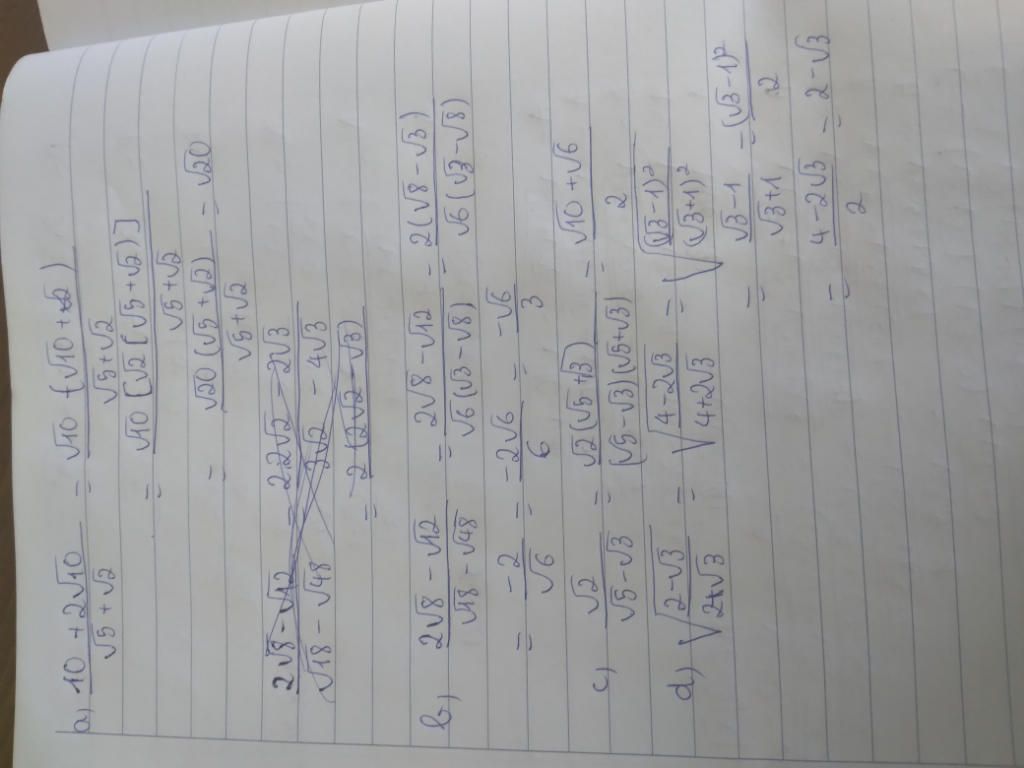 a) (10 + 2√10)/(√5 + √2) = √10 (√10 + 2)/(√5 + √2)
= √10 [√2 (√5 + √2)]/(√5 + √2)
= √20 (√5 + √2)/(√5 + √2) = √20
(2√8 - √12)/(√18 - √48) = (2·2√2 - 2√3)/(3√2 - 4√3)
= 2 (2√2 - √3)
b) (2√8 - √12)/(√18 - √48) = (2√8 - √12)/(√6 (√3 - √8)) = 2(√8 - √3)/(√6 (√3 - √8))
= -2/√6 = -2√6/6 = -√6/3
c) √2/(√5 - √3) = √2 (√5 + √3)/((√5 - √3)(√5 + √3)) = (√10 + √6)/2
d) √((2 - √3)/(2 + √3)) = √((4 - 2√3)/(4 + 2√3)) = √((√3 - 1)²/(√3 + 1)²)
= (√3 - 1)/(√3 + 1) = (√3 - 1)²/2
= (4 - 2√3)/2 = 2 - √3